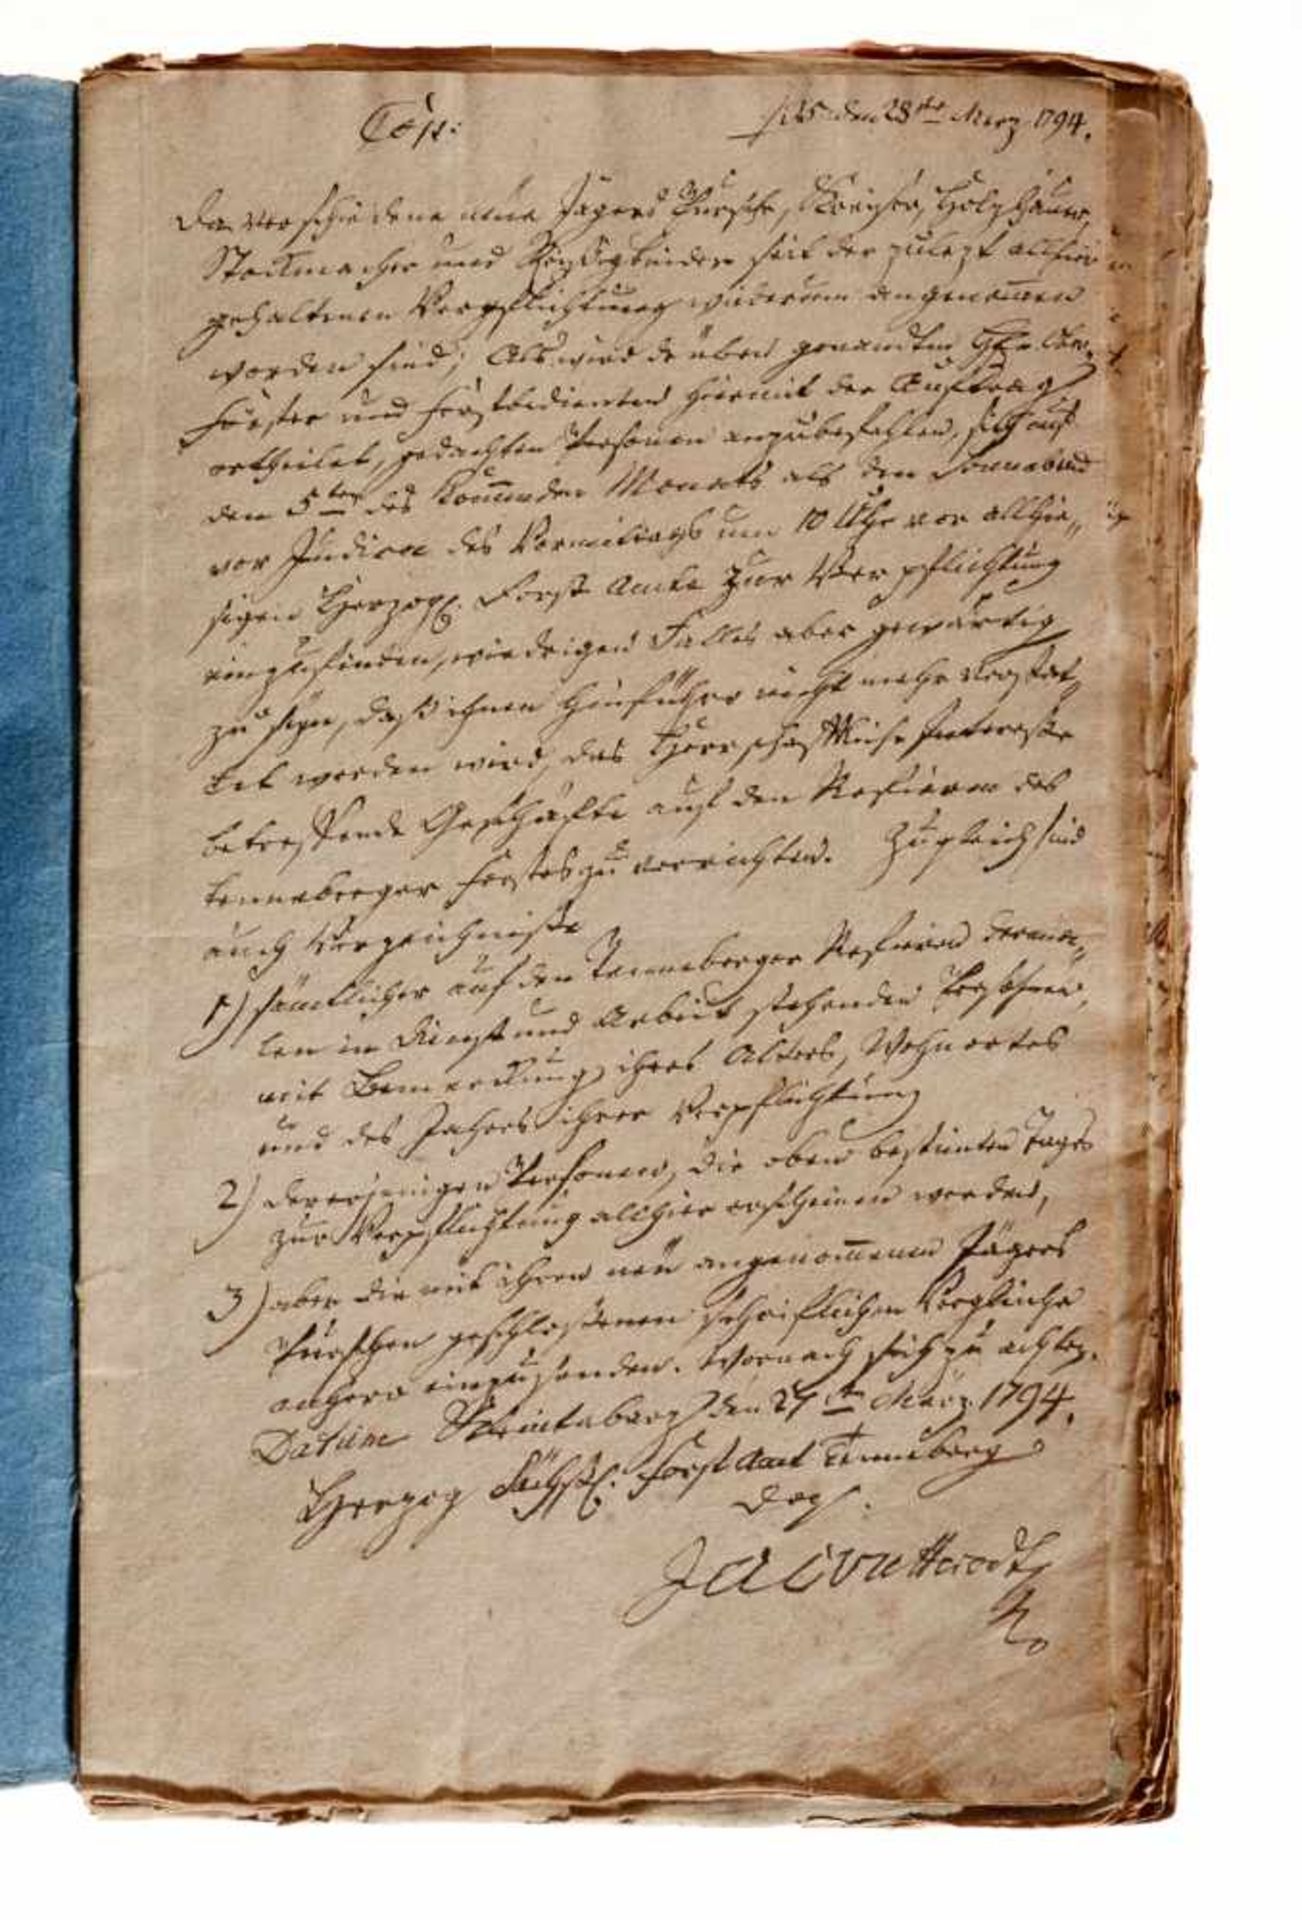 Cop:
den 28ten Merz 1794.
Da verschiedene neue Jägers Pursche, Kreyser, Holzhauer,
Stockmacher und Reißigbinder seit der zulezt allhier
gehaltenen Verpflichtung wiederum angenom̄en
worden sind; Als wird denen oben genandten
Förster und Forstbedienten hiermit der Auftrag
ertheilet, gedachten Personen anzubefehlen, sich auf
den 5ten des kom̄enden Monats als den Sonnabend
vor Judica des Vormittags um 10 Uhr vor allhie„
sigen Herzogl. Forst Amte zur Verpflichtung
einzufinden, wiedrigen Falles aber gewärtig
zu seyn, daß ihnen hinführo nicht mehr verstat„
tet werden wird, das Herrschafftliche Interesse
betreffende Geschäfte auf den Refieren des
Tenneberger Forstes zu verrichten. Zugleich sind
auch Verzeichniße
1) sämtlicher auf den Tenneberger Refieren derma„
len in Dienst und Arbeit stehenden Persohnen,
mit Bemerkung ihres Alters, Wohnortes
und des Jahres ihrer Verpflichtung
2) dererjenigen Personen, die oben bestimten Tages
zur Verpflichtung allhier erscheinen werden,
3) aber die mit ihren neu angenom̄enen Jägers
Purschen geschloßenen schriftlichen Vergleiche
anhero einzusenden. Wornach sich zu achten.
Datum den 27ten März 1794.
Herzog Sächßl. Forst Amt Tenneberg